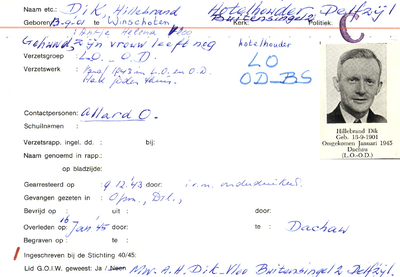 Naam etc.: Dik, Hillebrand Hotelhouder Delfzijl
Geboren 13.9.01 te Winschoten Kerk: Buitensingel 2 Politiek:
Antje Helena Vloo
Gehuwd zijn vrouw leeft nog hotelhouder
Verzetsgroep : L.O. - O.D. LO
Verzetswerk : Vanaf 1943 in L.O. en O.D. OD-BS
Contactpersonen: Allard O.
Schuilnaam :
Verzetsrapp. ingel. dd. : bij:
Naam genoemd in rapp.:
op bladzijde:
Hillebrand Dik
Geb. 13-9-1901
Omgekomen Januari 1945
Dachau
(L.O.-O.D.)
Gearresteerd op : 9.12.'43 door: i.v.m. onderduikers.
Gevangen gezeten in :
Bevrijd op : uit : door:
Overleden op : 16 Jan '45 door: te : Dachau
Begraven op : te :
Ingeschreven bij de Stichting 40/45:
Lid G.O.I.W. geweest: Ja / Neen Mw. A.H. Dik-Vloo Buitensingel 2 Delfzijl.